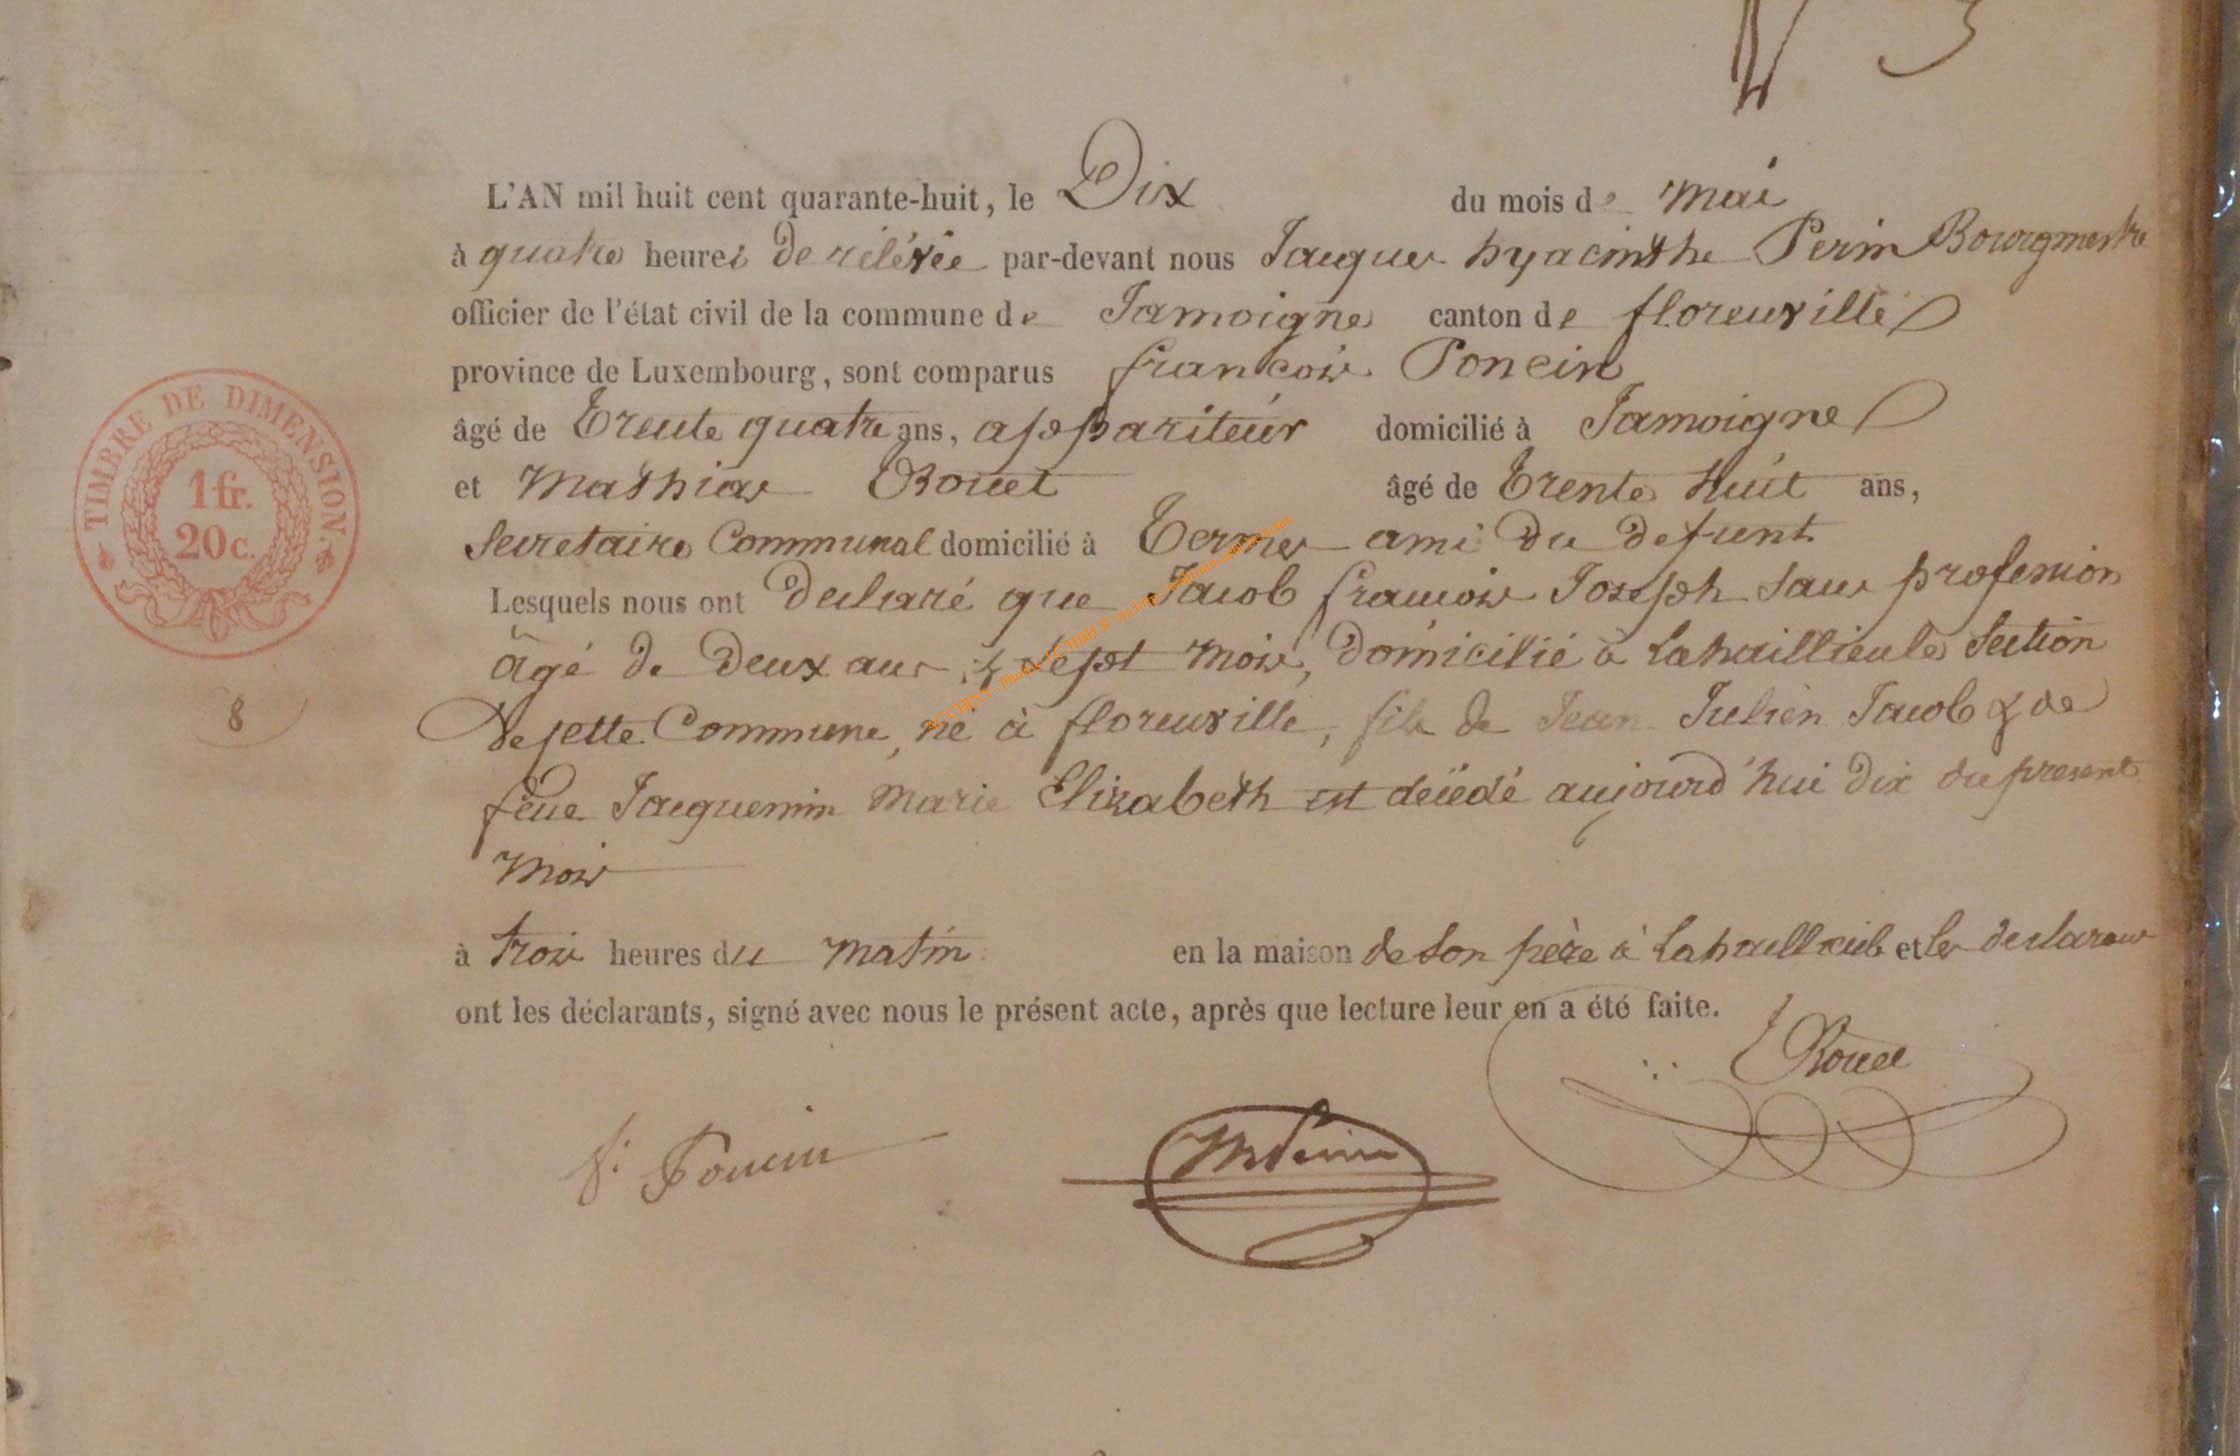 3
L'AN mil huit cent quarante-huit, le Dix du mois de Mai
à quatre heures de rélévée par-devant nous Jacques hyacinthe Perin Bourgmestre
officier de l'état civil de la commune de Jamoigne canton de florenville
province de Luxembourg, sont comparus françois Poncin
âgé de Trente quatre ans, appariteur domicilié à Jamoigne
et Mathias Rouet âgé de Trente huit ans,
Secretaire Communal domicilié à Termes ami du defunt
Lesquels nous ont declaré que Jacob françois Joseph sans profession
âgé de deux ans & sept mois, domicilié à Lahaillieule Section
de cette Commune, né à florenville, fils de Jean Julien Jacob & de
feue Jacquemin Marie Elizabeth est décédé aujourd'hui dix du present
Mois
à trois heures du matin en la maison de son père à Lahaillieule et les declarans
ont les déclarants, signé avec nous le présent acte, après que lecture leur en a été faite.
Rouet
f. Poncin
Perin
TIMBRE DE DIMENSION.
1 fr.
20 c.
8